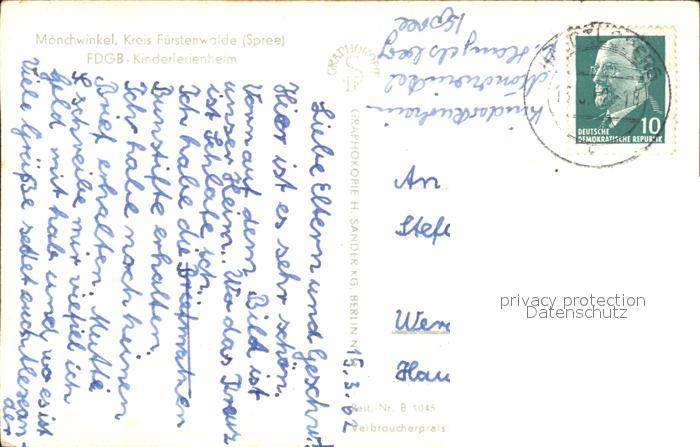 Mönchwinkel, Kreis Fürstenwalde (Spree)
FDGB-Kinderferienheim
Liebe Eltern und Geschwi
Hier ist es sehr schön.
Vorn auf dem Bild ist
unser Heim. Wo das Kreuz
ist Schlafe ich.
Ich habe die Briefmarken
Bunstifte erhalten.
Ich habe noch keinen
Brief erhalten. Mutti
schreibe mir wieviel ich
Geld mit hab und wo es ist
Viele Grüße sedet euch
der
15.3.62
GRAPHOKOPIE
GRAPHOKOPIE H. SANDER KG, BERLIN N
Kinderkurheim
Mönchwinkel
Hangelsberg
Spree
DEUTSCHE
DEMOKRATISCHE REPUBLIK
10
An
Stef
Wer
Hau
privacy protection
Datenschutz
Best.-Nr. B 1045
Verbraucherpreis